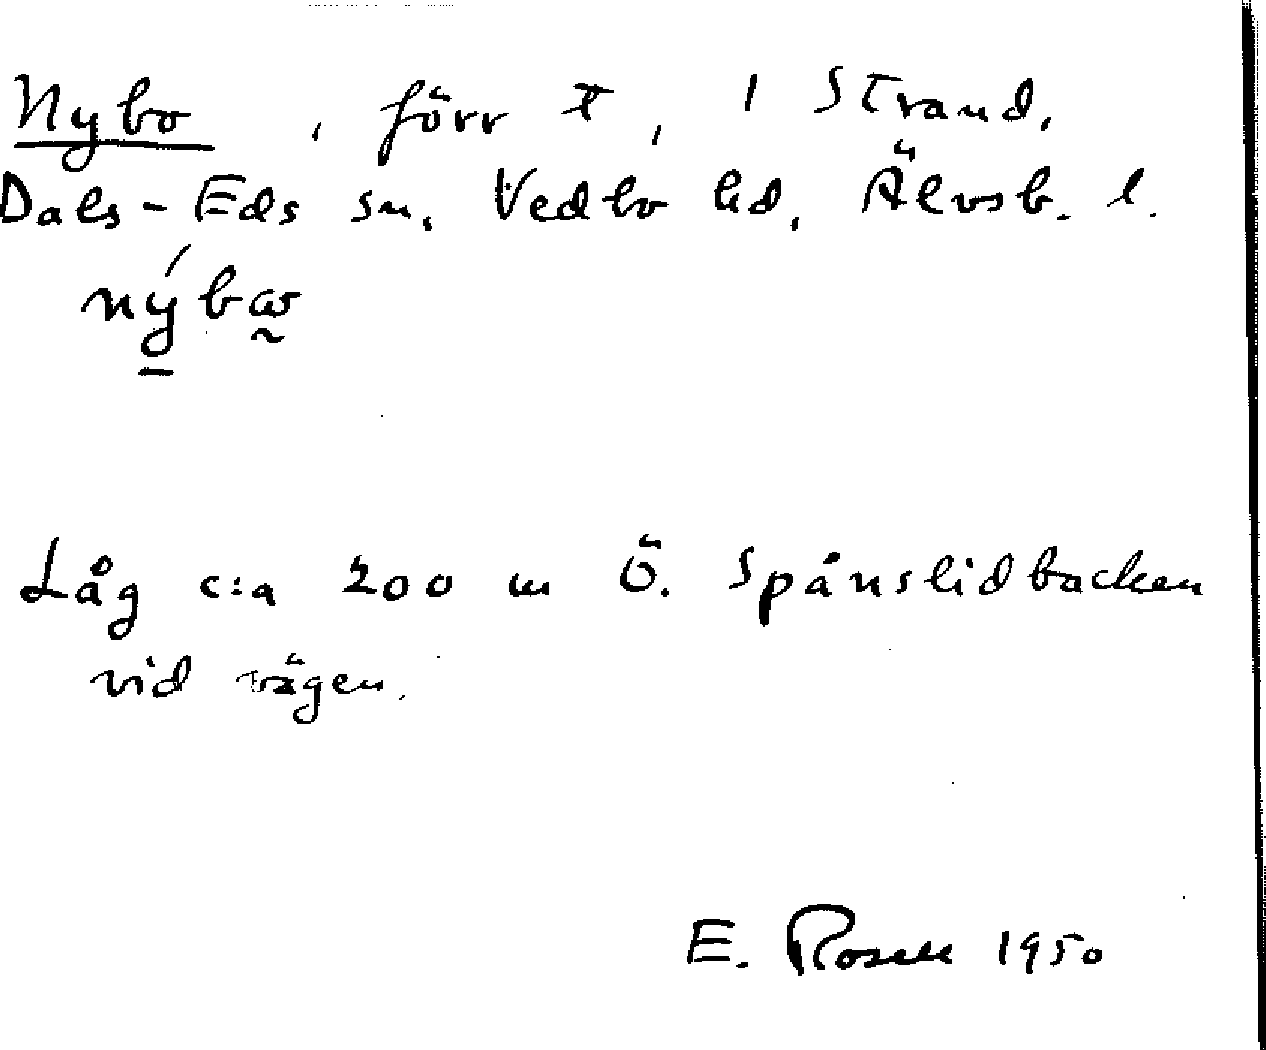 Nybo, förr t, i Strand,
Dals-Eds sn, Vedbo hd, Älvsb. l.
Låg c:a 200 m Ö. Spånslidbacken
vid vägen.
E. Rosell 1950